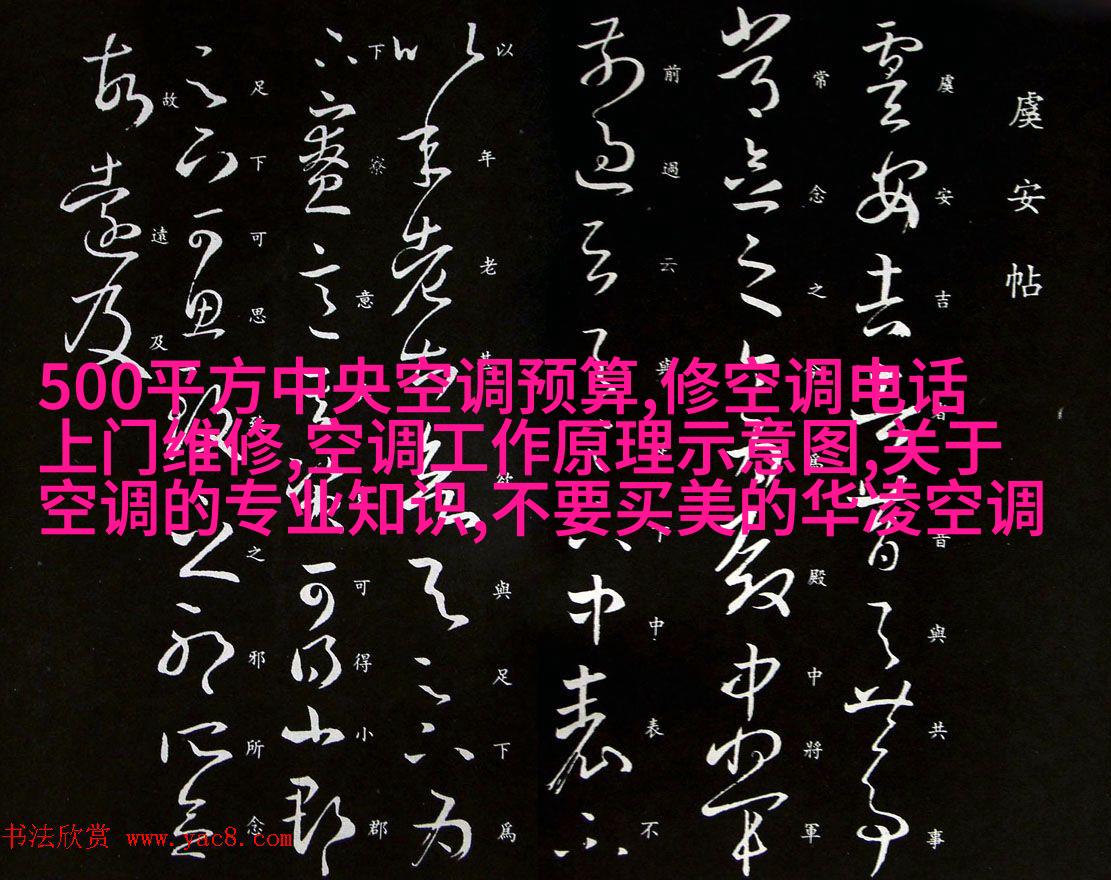 虞安帖
虞安吉者昔與共事
常念之今為殿中將軍
前過云與足下中表不
以年老甚欲與足下為
下寮意其資可得小郡
足下可思致之邪所念
故遠及
500平方中央空调预算,修空调电话
上门维修,空调工作原理示意图,关于
空调的专业知识,不要买美的华凌空调
书法欣赏 www.yac8.com